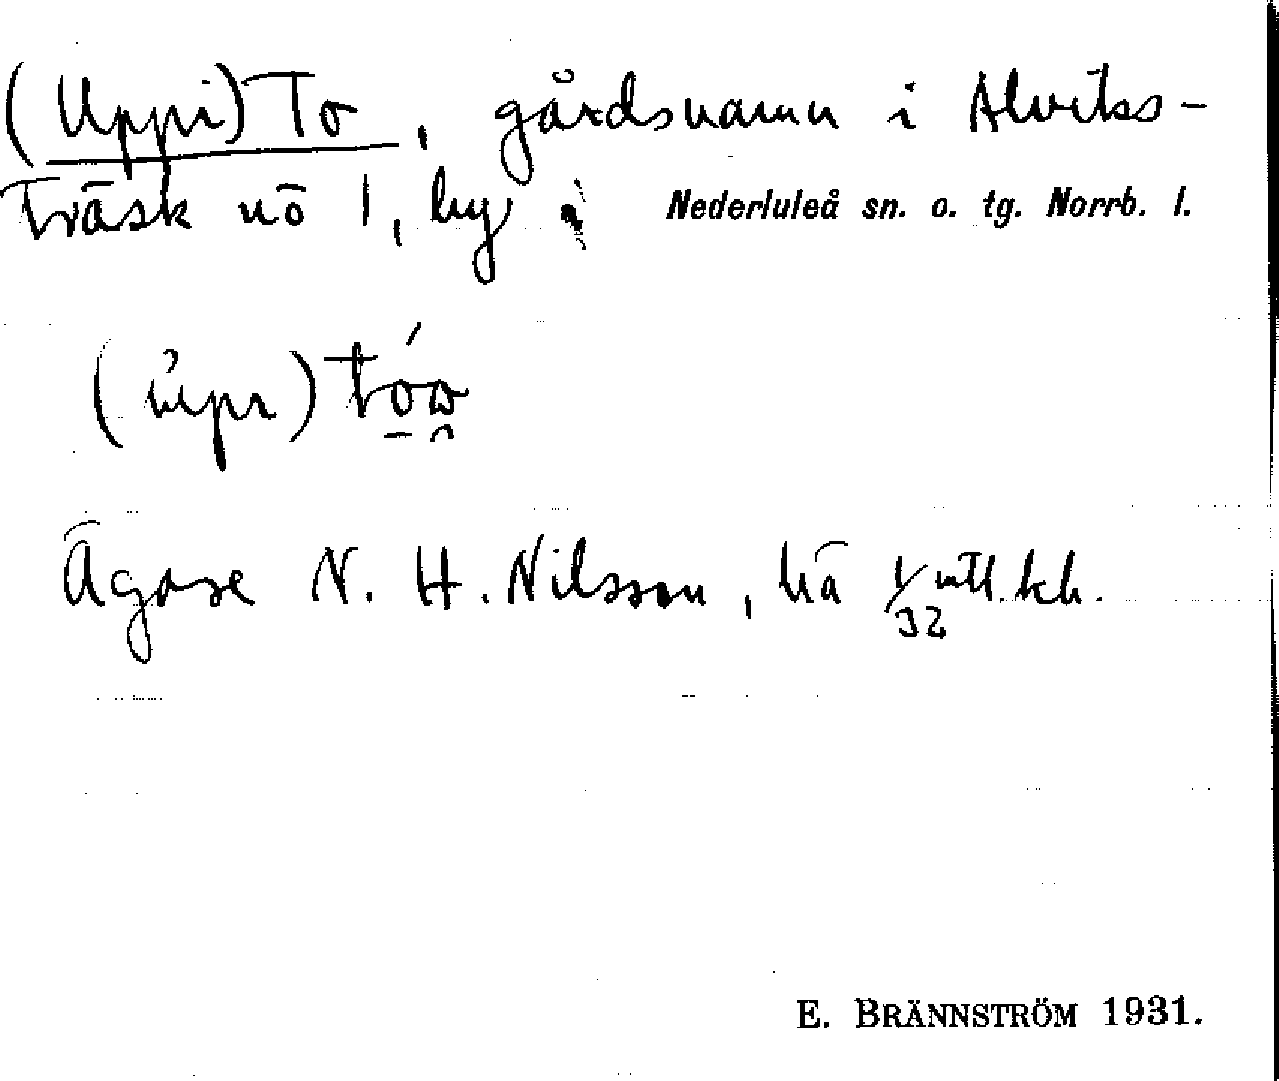 (Uppi) To, gårdsnamn i Alviks-
träsk nö 1, by i Nederluleå sn. o. tg. Norrb. l.
(ùpı) tóo
Ägare N. H. Nilsson, hä 1/32 mtl. kh.
E. BRÄNNSTRÖM 1931.